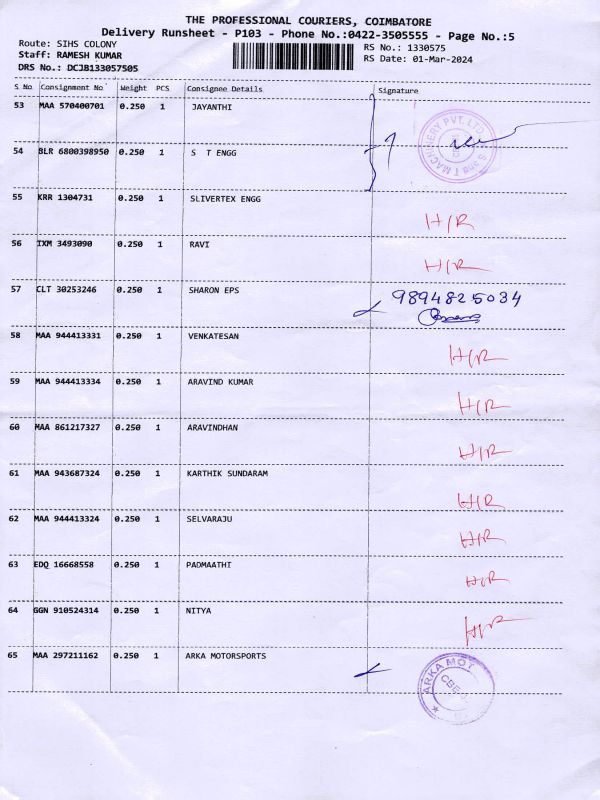 THE PROFESSIONAL COURIERS, COIMBATORE
Delivery Runsheet - P103 - Phone No.:0422-3505555 - Page No.:5
Route: SIHS COLONY RS No.: 1330575
Staff: RAMESH KUMAR RS Date: 01-Mar-2024
DRS No.: DCJB133057505
S No Consignment No Weight PCS Consignee Details Signature
53 MAA 570400701 0.250 1 JAYANTHI
S and T MACHINERY PVT. LTD.
54 BLR 6800398950 0.250 1 S T ENGG
55 KRR 1304731 0.250 1 SLIVERTEX ENGG H/R
56 IXM 3493090 0.250 1 RAVI H/R
57 CLT 30253246 0.250 1 SHARON EPS 9894825034
58 MAA 944413331 0.250 1 VENKATESAN H/R
59 MAA 944413334 0.250 1 ARAVIND KUMAR H/R
60 MAA 861217327 0.250 1 ARAVINDHAN H/R
61 MAA 943687324 0.250 1 KARTHIK SUNDARAM H/R
62 MAA 944413324 0.250 1 SELVARAJU H/R
63 EDQ 16668558 0.250 1 PADMAATHI H/R
64 GGN 910524314 0.250 1 NITYA H/R
65 MAA 297211162 0.250 1 ARKA MOTORSPORTS
ARKA MOT